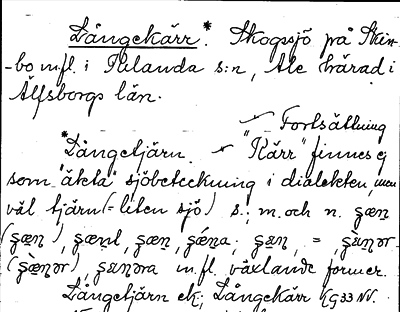 Långekärr.* Skogssjö på Skin-
-bo m.fl. i Skalanda s:n, Ale härad i
Älfsborgs län.
Fortsättning
*Långetjärn. "Kärr" finnes ej
som "äkta" sjöbeteckning i dialekten, men
väl tjärn (= liten sjö) s.; m. och n. ʂæn
(ʂæn), ʂænl, ʂæn, ʂǽna; ʂɛn, =, ʂɛ̀nər
(ʂæ̀nər), ʂɛnəra m.fl. växlande former.
Långetjärn ek; Långekärr KG33 NV.